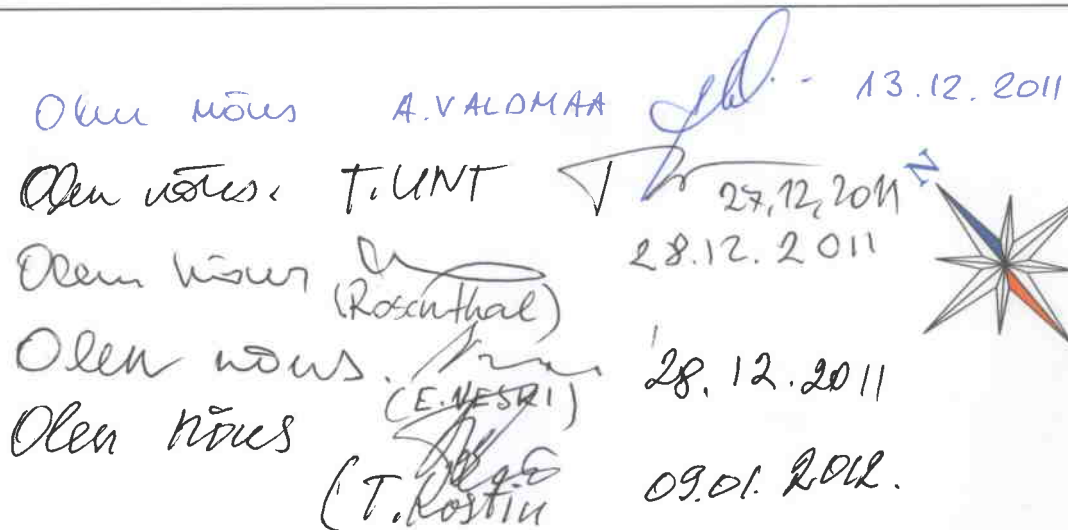 Olen nõus A. VALDMAA 13.12.2011
N
Olen nõus. T. UNT 27.12.2011
Olen nõus (Rosenthal) 28.12.2011
Olen nõus. (E. NESKRI) 28.12.2011
Olen nõus (T. Kostin 09.01.2012.